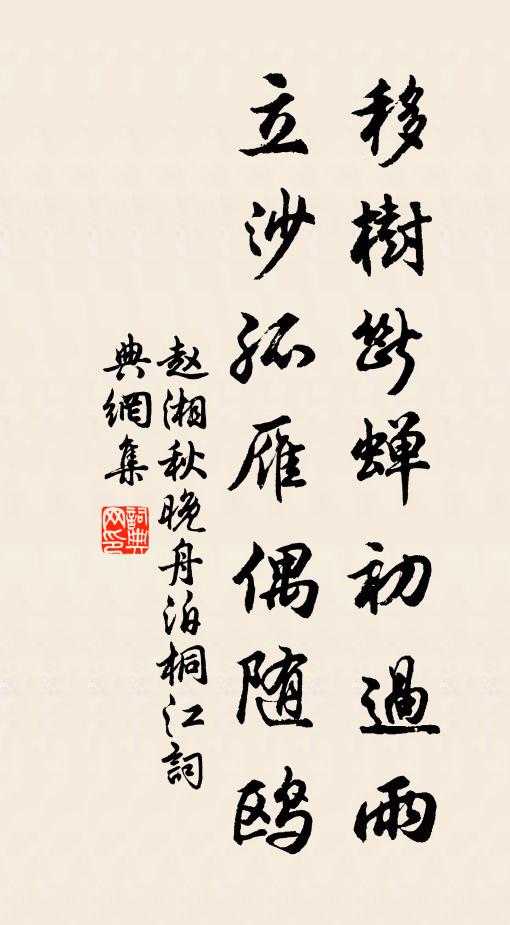 移樹斷蝉初過雨
立沙孤雁偶随鸥
赵湘秋晚舟泊桐江詞
典網集
詞典
网印